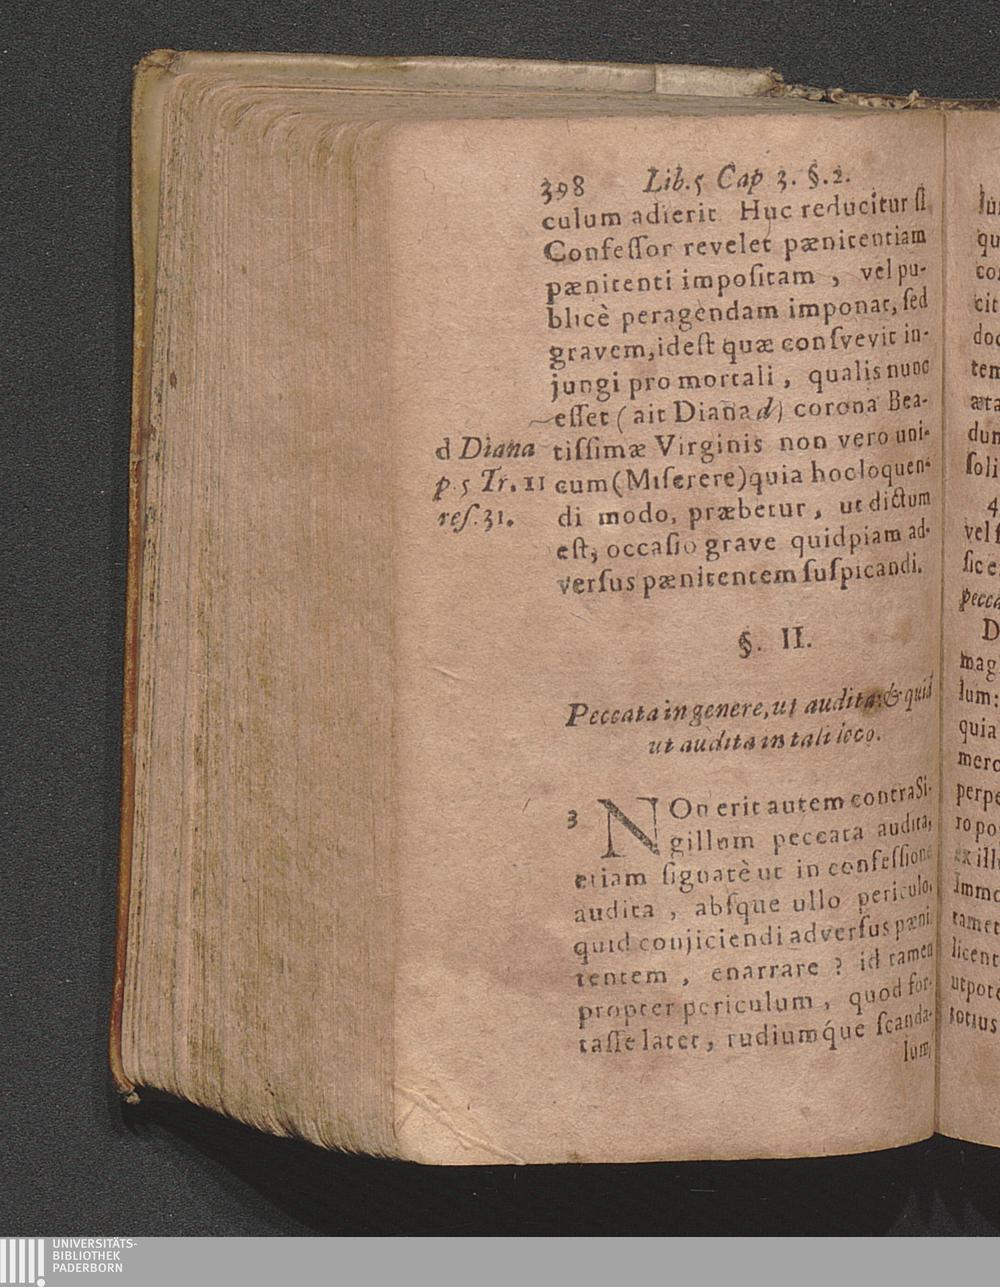 398 Lib.5 Cap 3. §.2.
culum adierit Huc reducitur si
Confessor revelet pænitentiam
pænitenti impositam , vel pu-
blicè peragendam imponat, sed
gravem, idest quæ consvevit in-
jungi pro mortali , qualis nunc
esset ( ait Diana d) corona Bea-
d Diana
p.5 Tr. 11
res. 31.
tissimæ Virginis non vero uni-
cum (Miserere) quia hoc loquen-
di modo, præbetur , ut dictum
est; occasio grave quidpiam ad-
versus pænitentem suspicandi.
§. II.
Peccata in genere, ut audita: & quid
ut audita in tali loco.
3 NOn erit autem contra Si-
gillum peccata audita,
etiam signatè ut in confessione
audita , absque ullo periculo,
quid conjiciendi adversus pæni-
tentem , enarrare ? id tamen
propter periculum , quod for-
tasse latet, rudiumq́ue scanda-
lum,
lu
qu
co
cit
doc
tem
æta
dun
soli
4
vel
sic e
pecca
D
mag
lum:
quia
merc
perpe
ro po
ex ill
Immo
tamet
licent
utpote
totius
UNIVERSITÄTS-
BIBLIOTHEK
PADERBORN